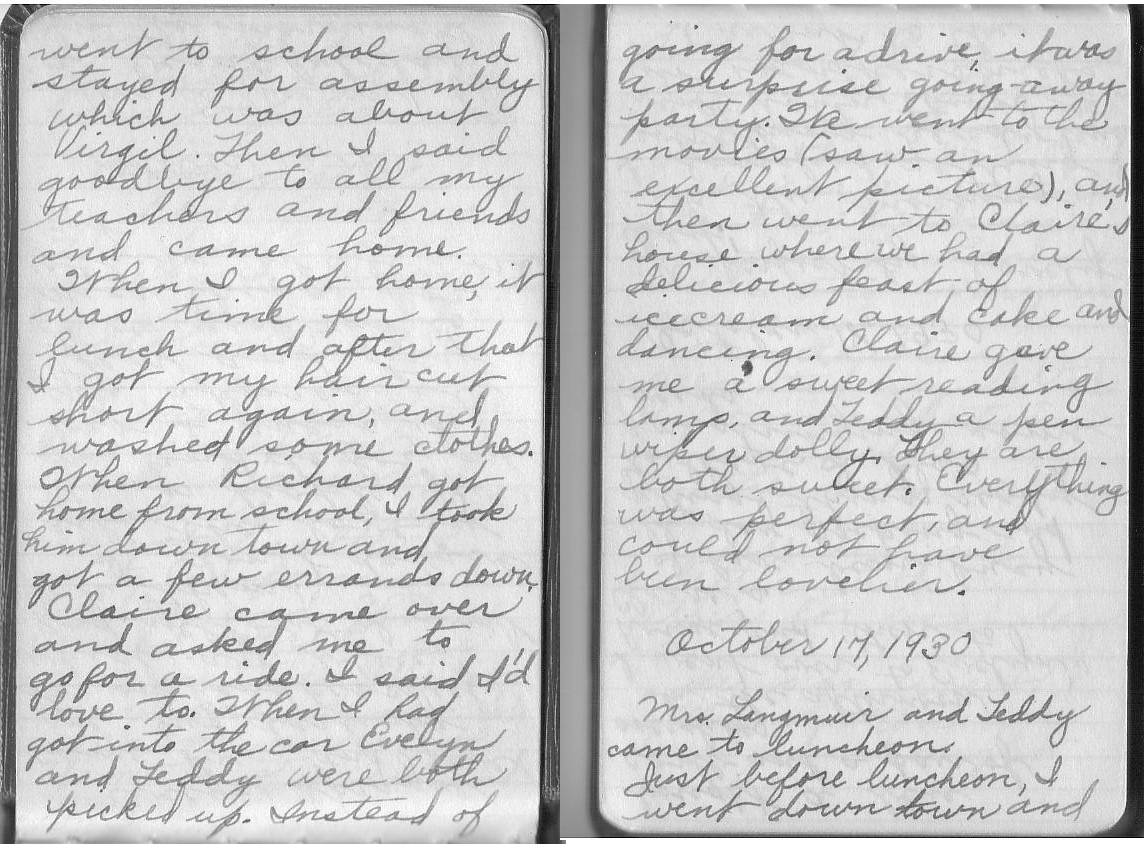 went to school and
stayed for assembly
which was about
Virgil. Then I said
goodbye to all my
teachers and friends
and came home.
When I got home, it
was time for
lunch and after that
I got my hair cut
short again, and
washed some clothes.
When Richard got
home from school, I took
him down town and
got a few errands down.
Claire came over
and asked me to
go for a ride. I said I'd
love to. When I had
got into the car Evelyn
and Teddy were both
picked up. Instead of
going for a drive, it was
a surprise going-away
party. We went to the
movies (saw an
excellent picture), and
then went to Claire's
house where we had a
delicious feast of
icecream and cake and
dancing. Claire gave
me a sweet reading
lamp, and Teddy a pen
wiper dolly. They are
both sweet. Everything
was perfect, and
could not have
been lovelier.
October 17, 1930
Mrs. Langmuir and Teddy
came to luncheon.
Just before luncheon, I
went down town and